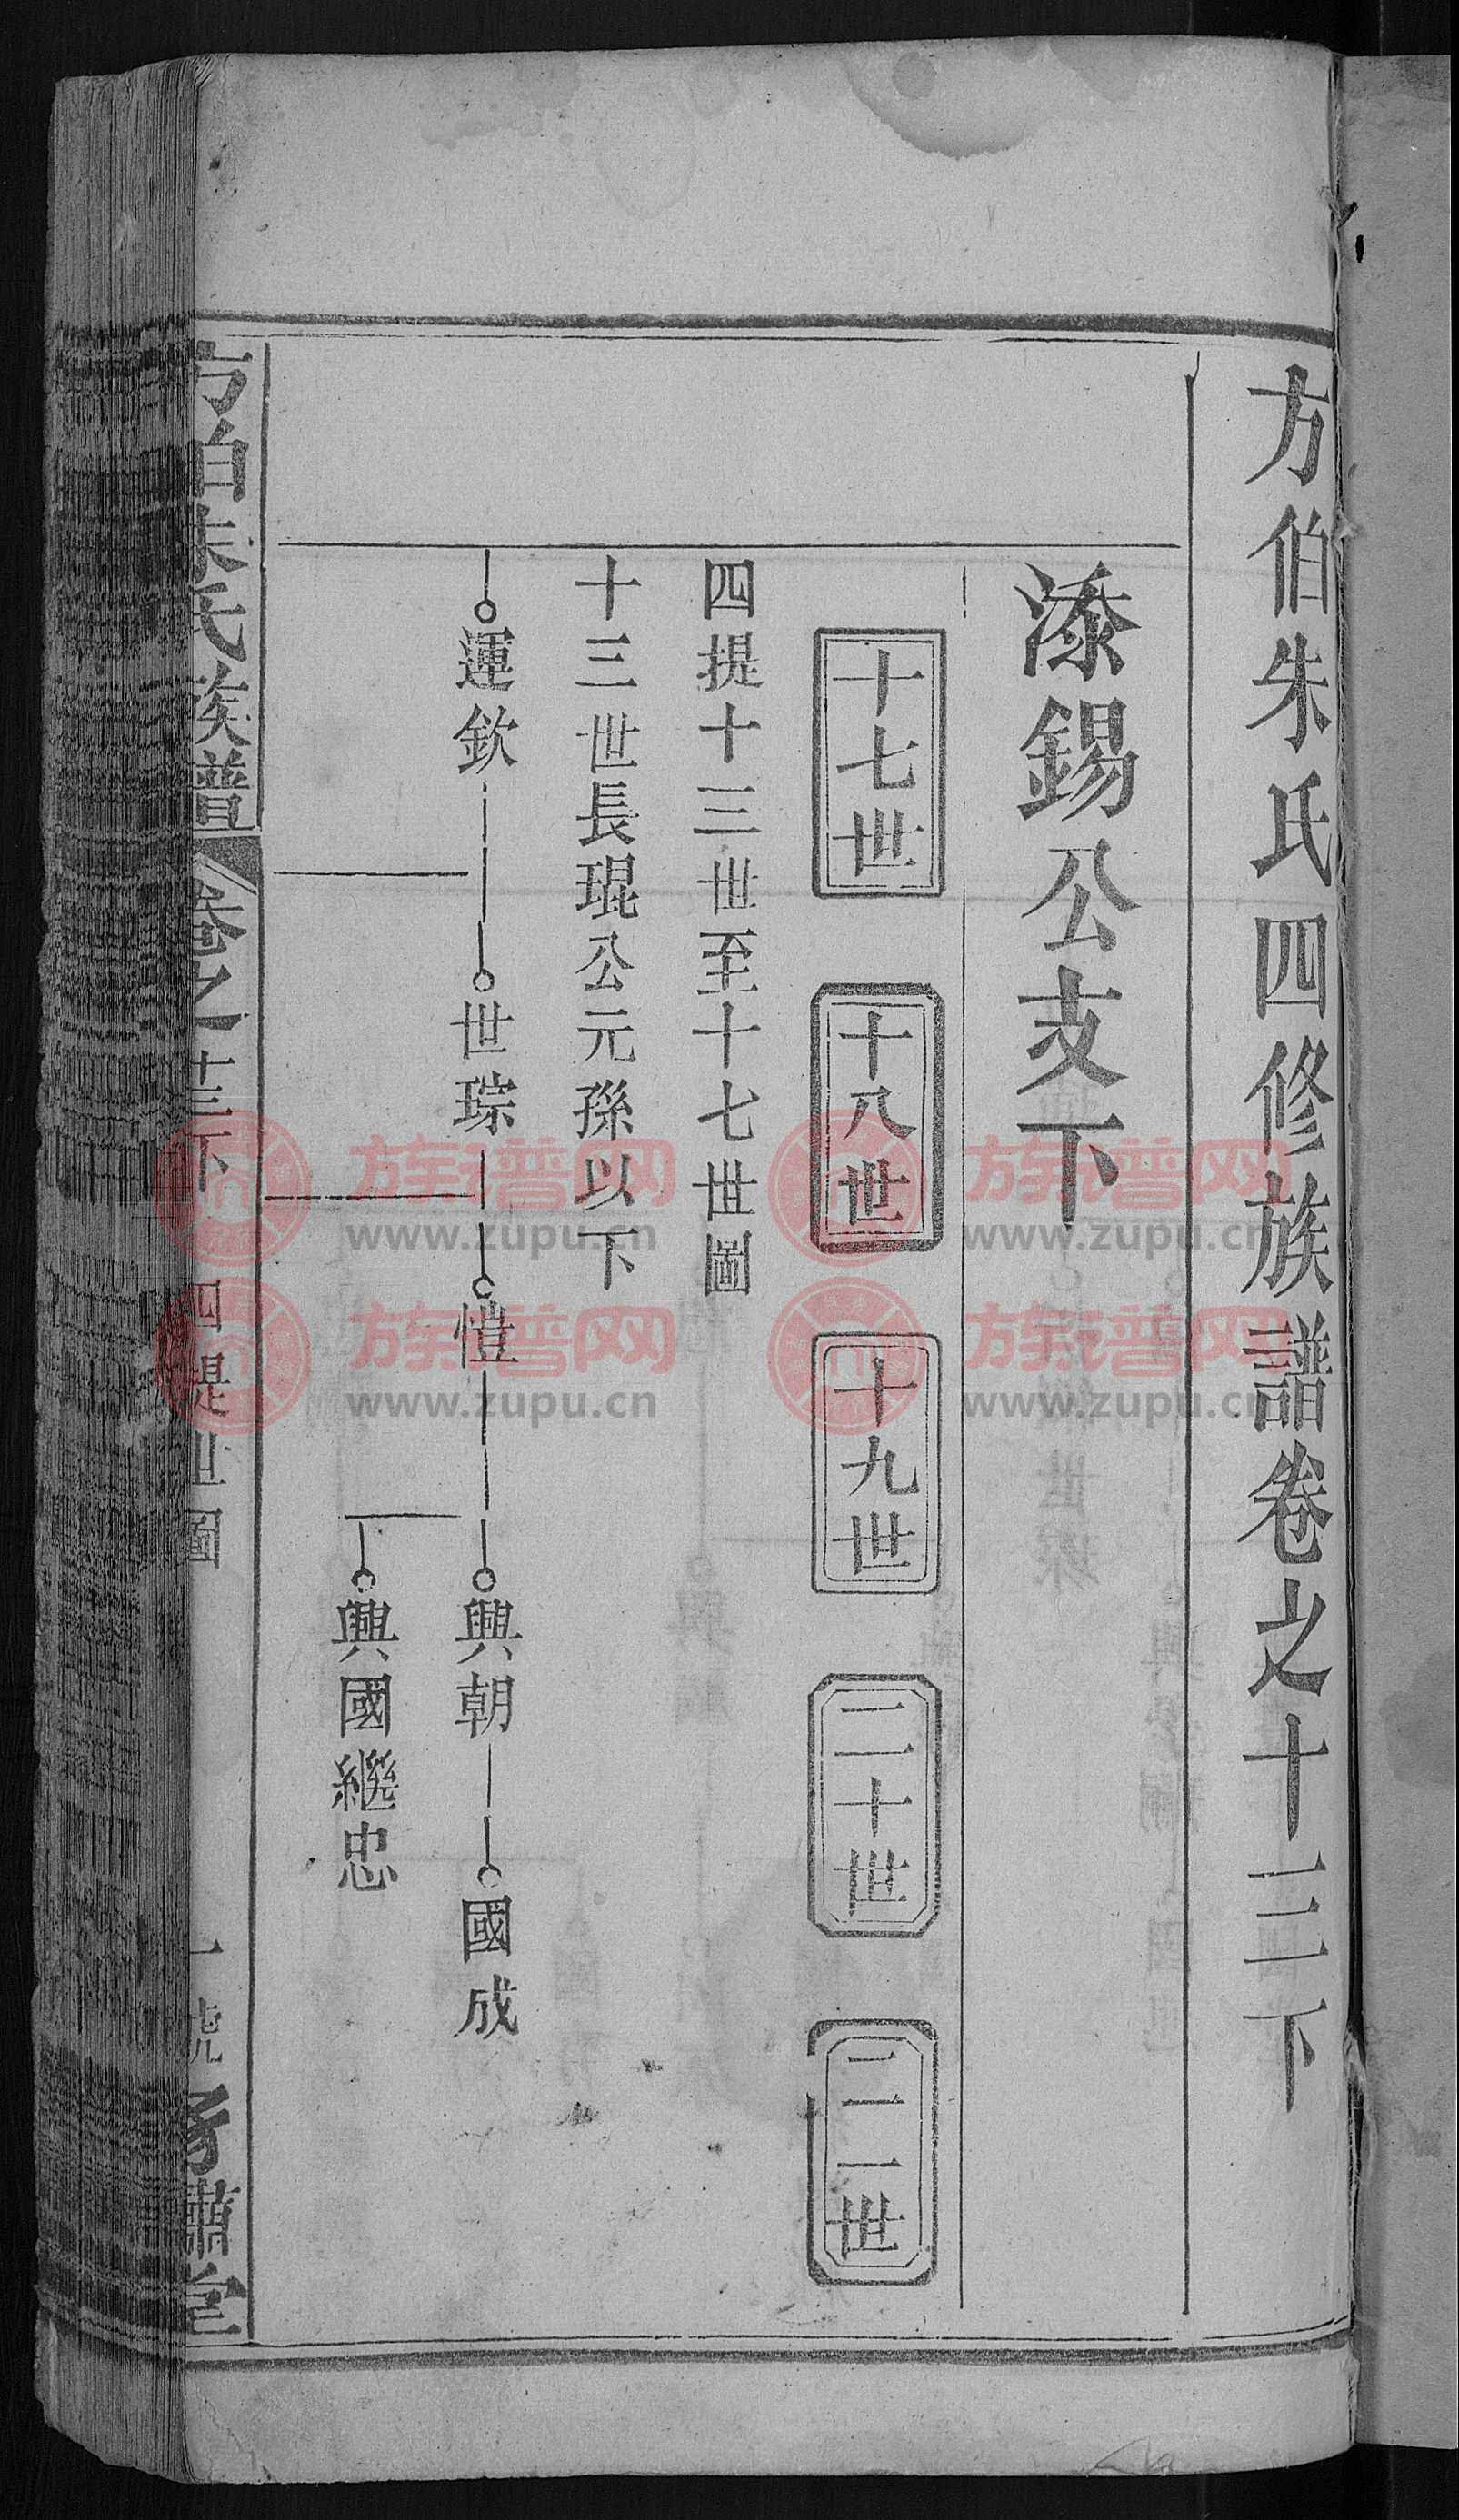 方伯朱氏四修族譜卷之十三下
添錫公支下
十七世
十八世
十九世
二十世
二一世
四提十三世至十七世圖
十三世長琨公元孫以下
運欽
世琮
愷
興朝
國成
興國繼忠
方伯朱氏族譜
卷之十三下
四提世圖
一號
族谱网
www.zupu.cn
族谱网
www.zupu.cn
族谱网
www.zupu.cn
族谱网
www.zupu.cn